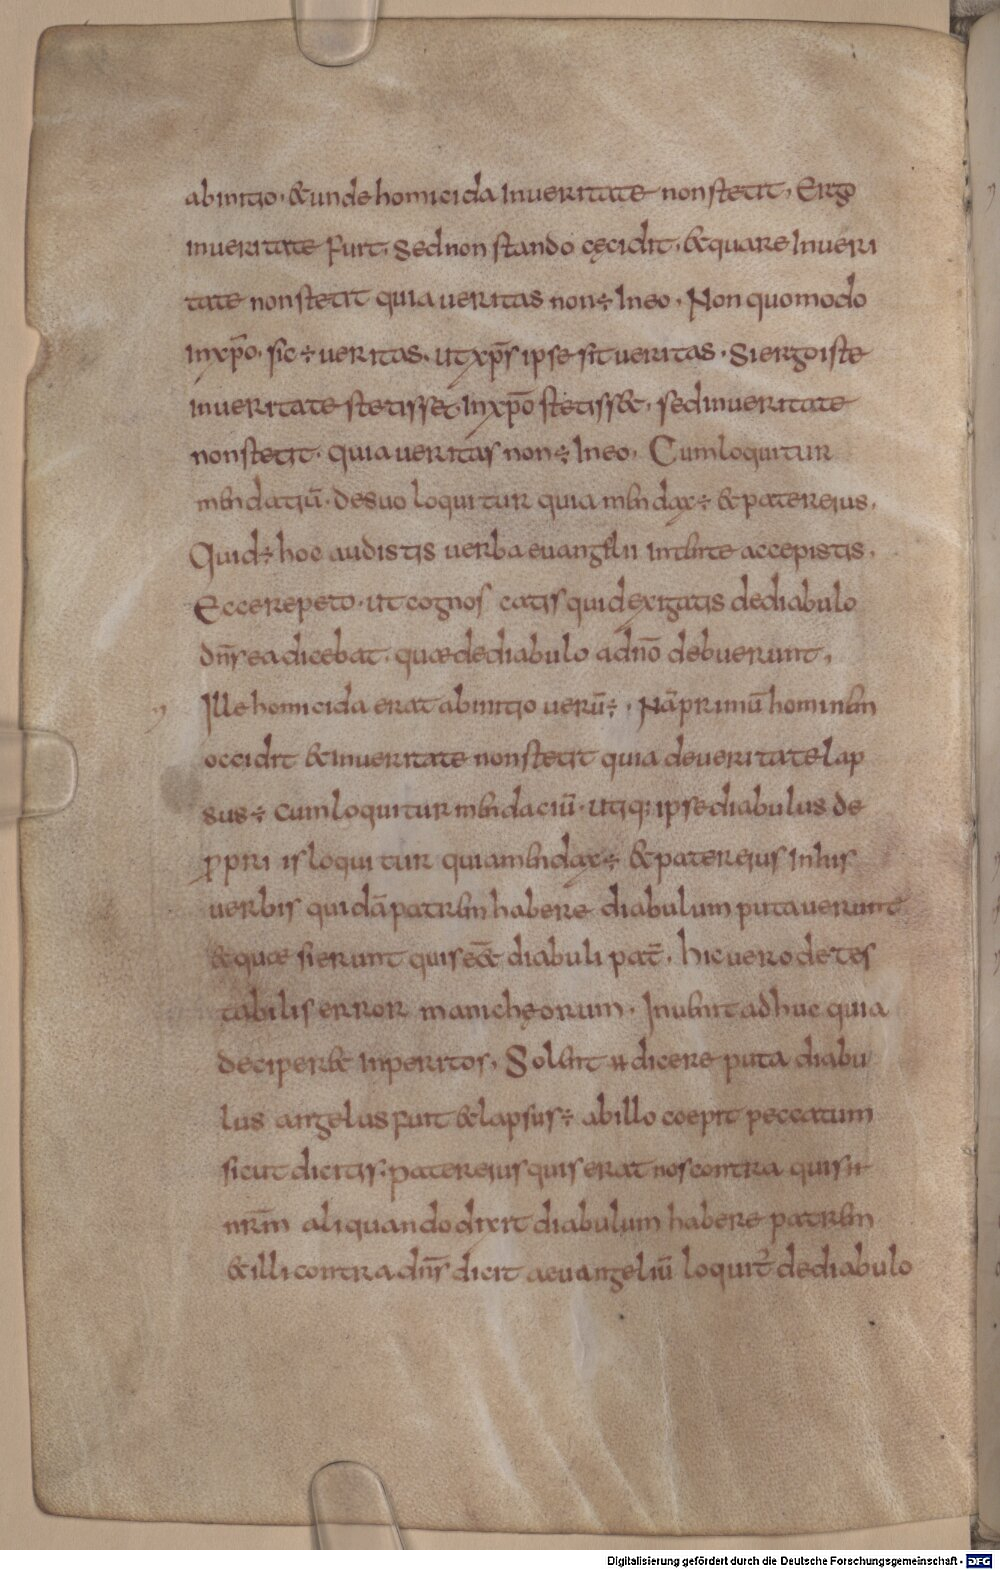 abinitio · &unde homicida Inueritate nonstetit, Ergo
Inueritate fuit. Sed non stando cęcidit · &quare Inueri
tate nonstetit quia ueritas non ÷ Ineo · Non quomodo
Inxp̄o. sic ÷ ueritas. utxp̄s ipse sit ueritas · Siergo iste
Inueritate stetisset · Inxp̄o stetiss&, sed inueritate
nonstetit · quia ueritas non ÷ Ineo. Cum loquitur
mendatiū · desuo loquitur quia mendax ÷ & pater eius,
Quid ÷ hoc audistis uerba euangelii intente accepistis,
Ecce repeto · ut cognos catis quid exigatis dediabulo
dn̄s ea dicebat · quae dediabulo adnō debuerunt,
Ille homicida erat abinitio uerū ÷ · Nā primū hominem
occidit &Inueritate nonstetit quia de ueritate lap
sus ÷ cum loquitur mendaciū · utiq; ipse diabulus de
ꝓpri is loqui tur quia mendax ÷ & pater eius In his
uerbis quidā patrem habere diabulum putauerunt
&quae sierunt quis eēt diabuli pat̄, hic uero detes
tabilis error manichęorum. Inuenit adhuc quia
decipere& Inperitos, Solent ·n· dicere puta diabu
lus angelus fuit &lapsus ÷ abillo coepit peccatum
sicut dicitis · pater eius quis erat nos contra quis n
nr̄m aliquando dixit diabulum habere patrem
&illi contra dn̄s dicit aeuangeliū loquit̄ dediabulo
Digitalisierung gefördert durch die Deutsche Forschungsgemeinschaft - DFG